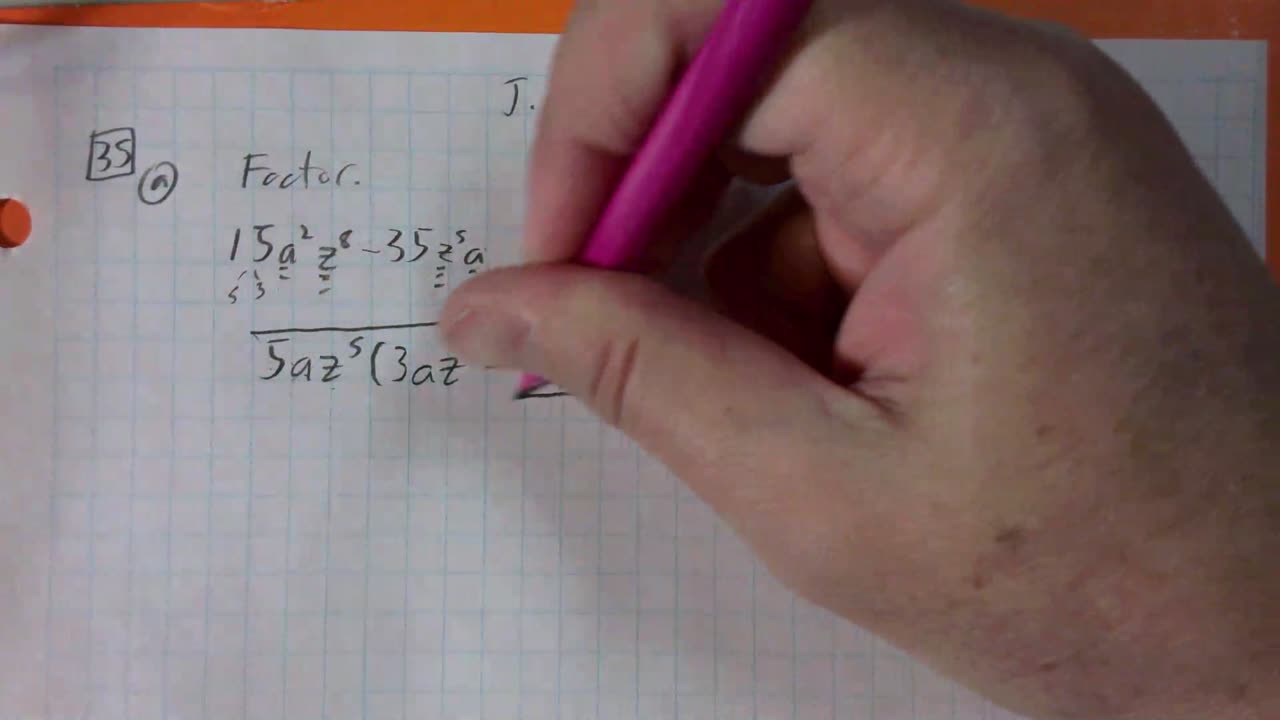 J.
35 a Factor.
15a²z⁸-35z⁵a
5 3
5az⁵(3az -